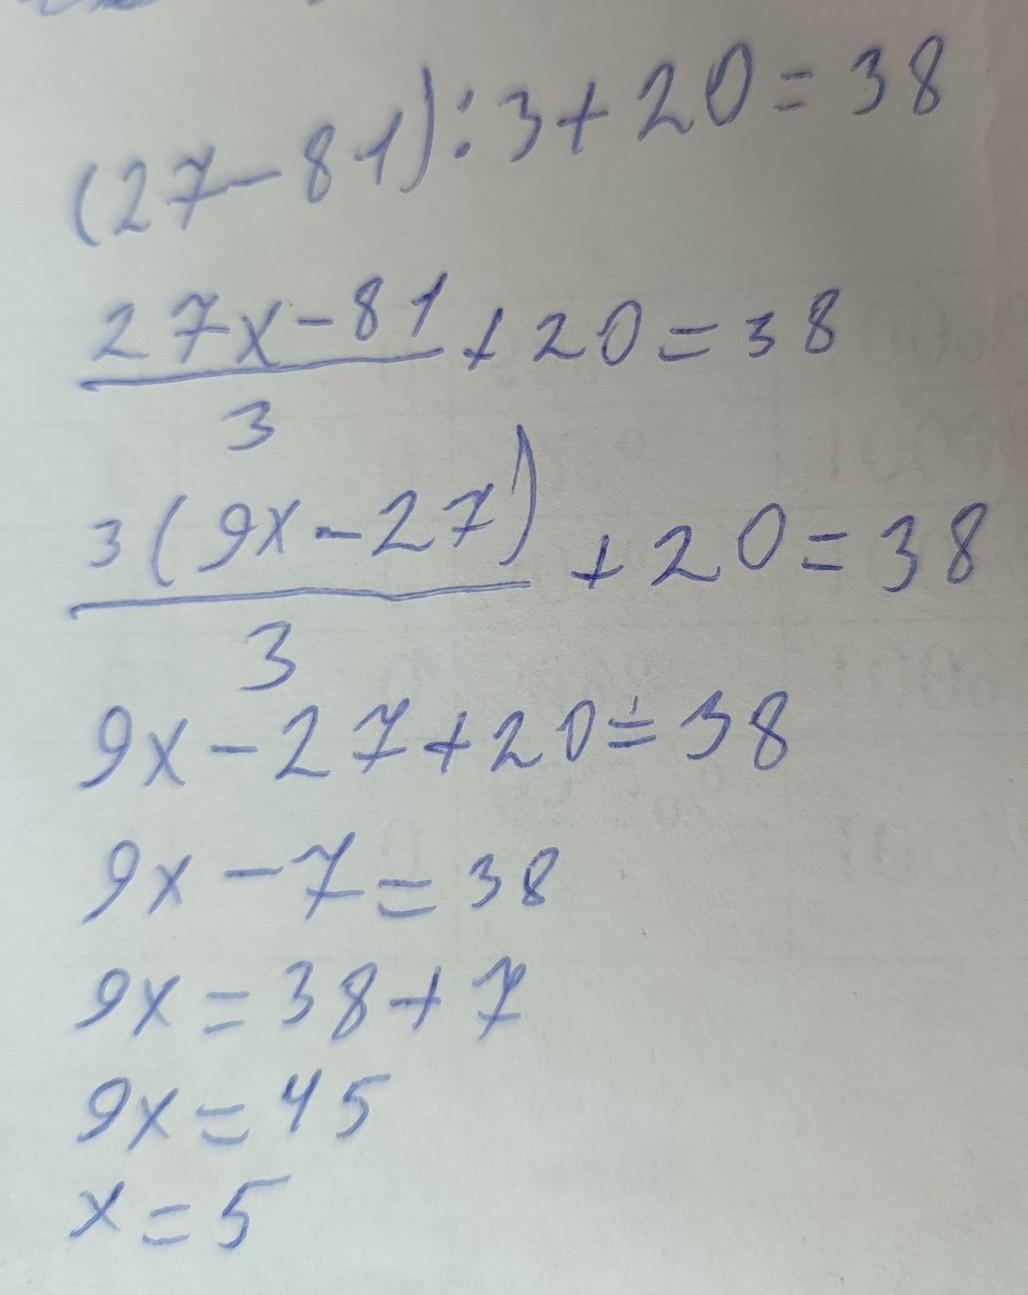 (27-81):3+20=38
27x-81/3+20=38
3(9x-27)/3+20=38
9x-27+20=38
9x-7=38
9x=38+7
9x=45
x=5